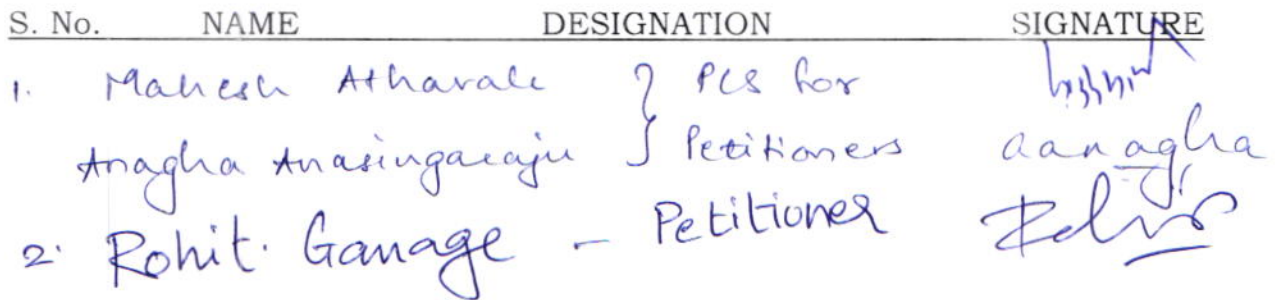 S. No. NAME DESIGNATION SIGNATURE
1. Mahesh Athavale } PCS for
Anagha Anasingaraju } Petitioners aanagha
2. Rohit. Ganage - Petitioner